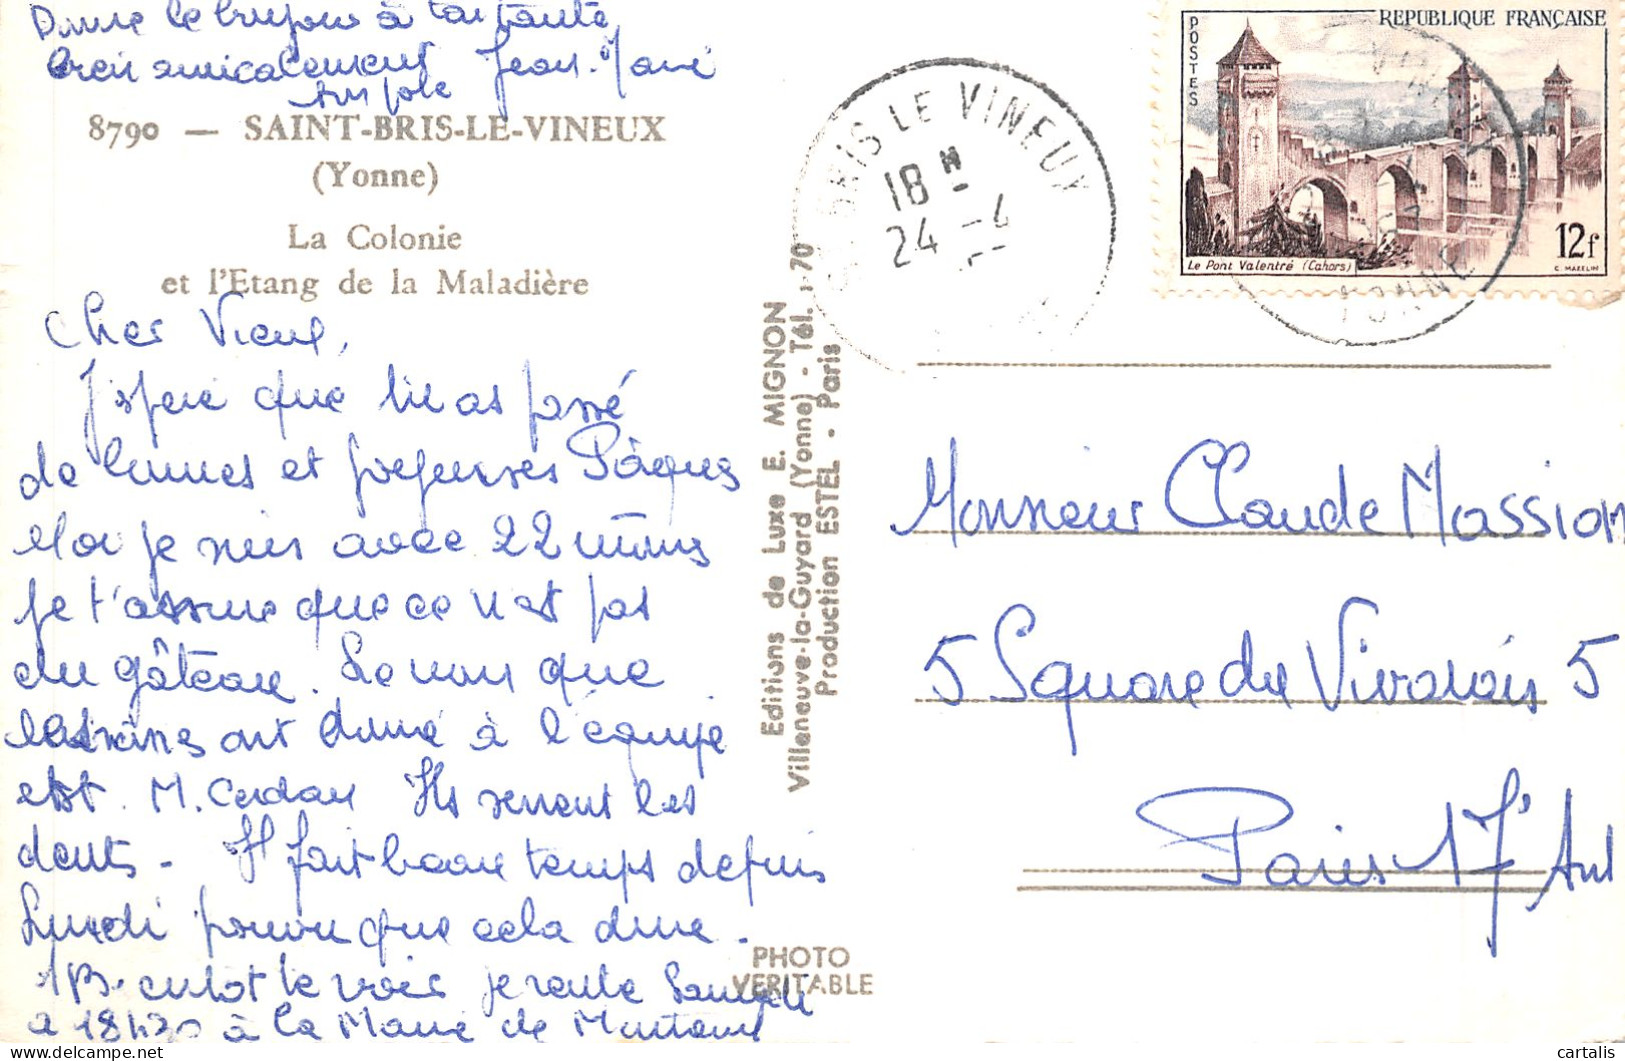 Donne le bonjour à ta tante
Bien amicalement Jean-Marie
8790 — SAINT-BRIS-LE-VINEUX
(Yonne)
La Colonie
et l'Etang de la Maladière
Cher Vieux,
J'espère que tu as passé
de bonnes et joyeuses Pâques
Moi je suis avec 22 mômes
je t'assure que ce n'est pas
du gâteau. Le nom que
ont donné à l'équipe
est M. Cerdan Ils serrent les
dents - Il fait beau temps depuis
Lundi pourvu que cela dure -
te voir je rentre Samedi
à 18h30 à la Mairie de
Editions de Luxe E. MIGNON
Villeneuve-la-Guyard (Yonne) - Tél. : 70
Production ESTEL - Paris
PHOTO
VERITABLE
BRIS LE VINEUX
18 H
24 - 4
POSTES
REPUBLIQUE FRANÇAISE
Le Pont Valentré (Cahors)
12f
C. MAZELIN
YONNE
Monsieur Claude Massion
5 Square du Vivarais 5
Paris 17e
cartalis